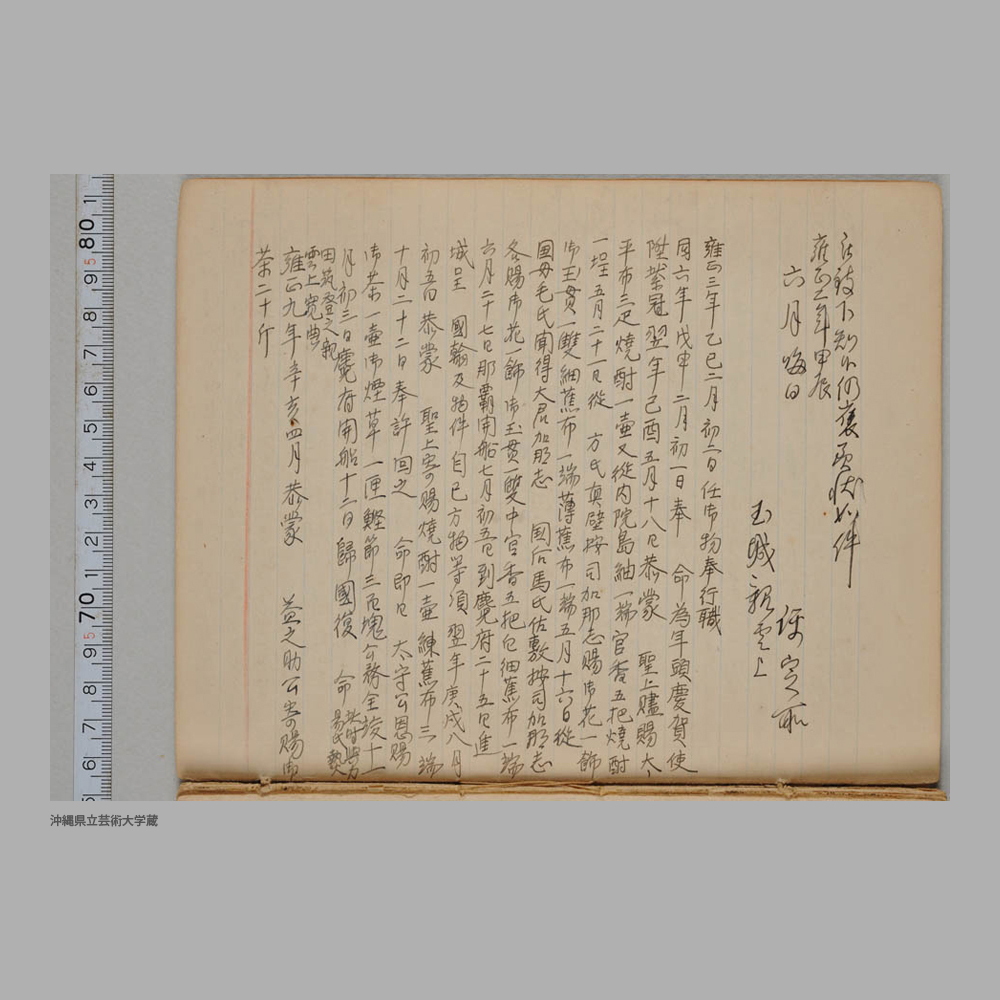 雍正二年甲辰
六月晦日
評定所
玉城親雲上
雍正三年乙巳二月初二日任御物奉行職
同六年戊申二月初一日奉 命為年頭慶賀使
陞紫冠翌年己酉五月十八日恭蒙 聖上贐賜大々
平布三疋焼酎一壷又従内院島紬一端官香五把焼酎
一埕五月二十一日従 方氏真壁按司加那志賜御花一飾
御玉貫一雙細蕉布一端薄蕉布一端五月十六日従
国母毛氏聞得大君加那志 国后馬氏佐敷按司加那志
各賜御花一飾御玉貫一雙中官香五把白細蕉布一端
六月二十七日那覇開船七月初五日到麑府二十五日進
城呈 國翰及物件自己方物等項翌年庚戌八月
初五日恭蒙 聖上寄賜焼酎一壷練蕉布三端
十月二十二日奉許回之 命即日 太守公恩賜
御茶一壷御煙草一匣鰹節三百塊公務全竣十一
月初三日麑府開船十二日歸國復 命
田筑登之親
雲上寛典
雍正九年辛亥四月恭蒙 益之助公寄賜御
茶二十斤
80
70
沖縄県立芸術大学蔵